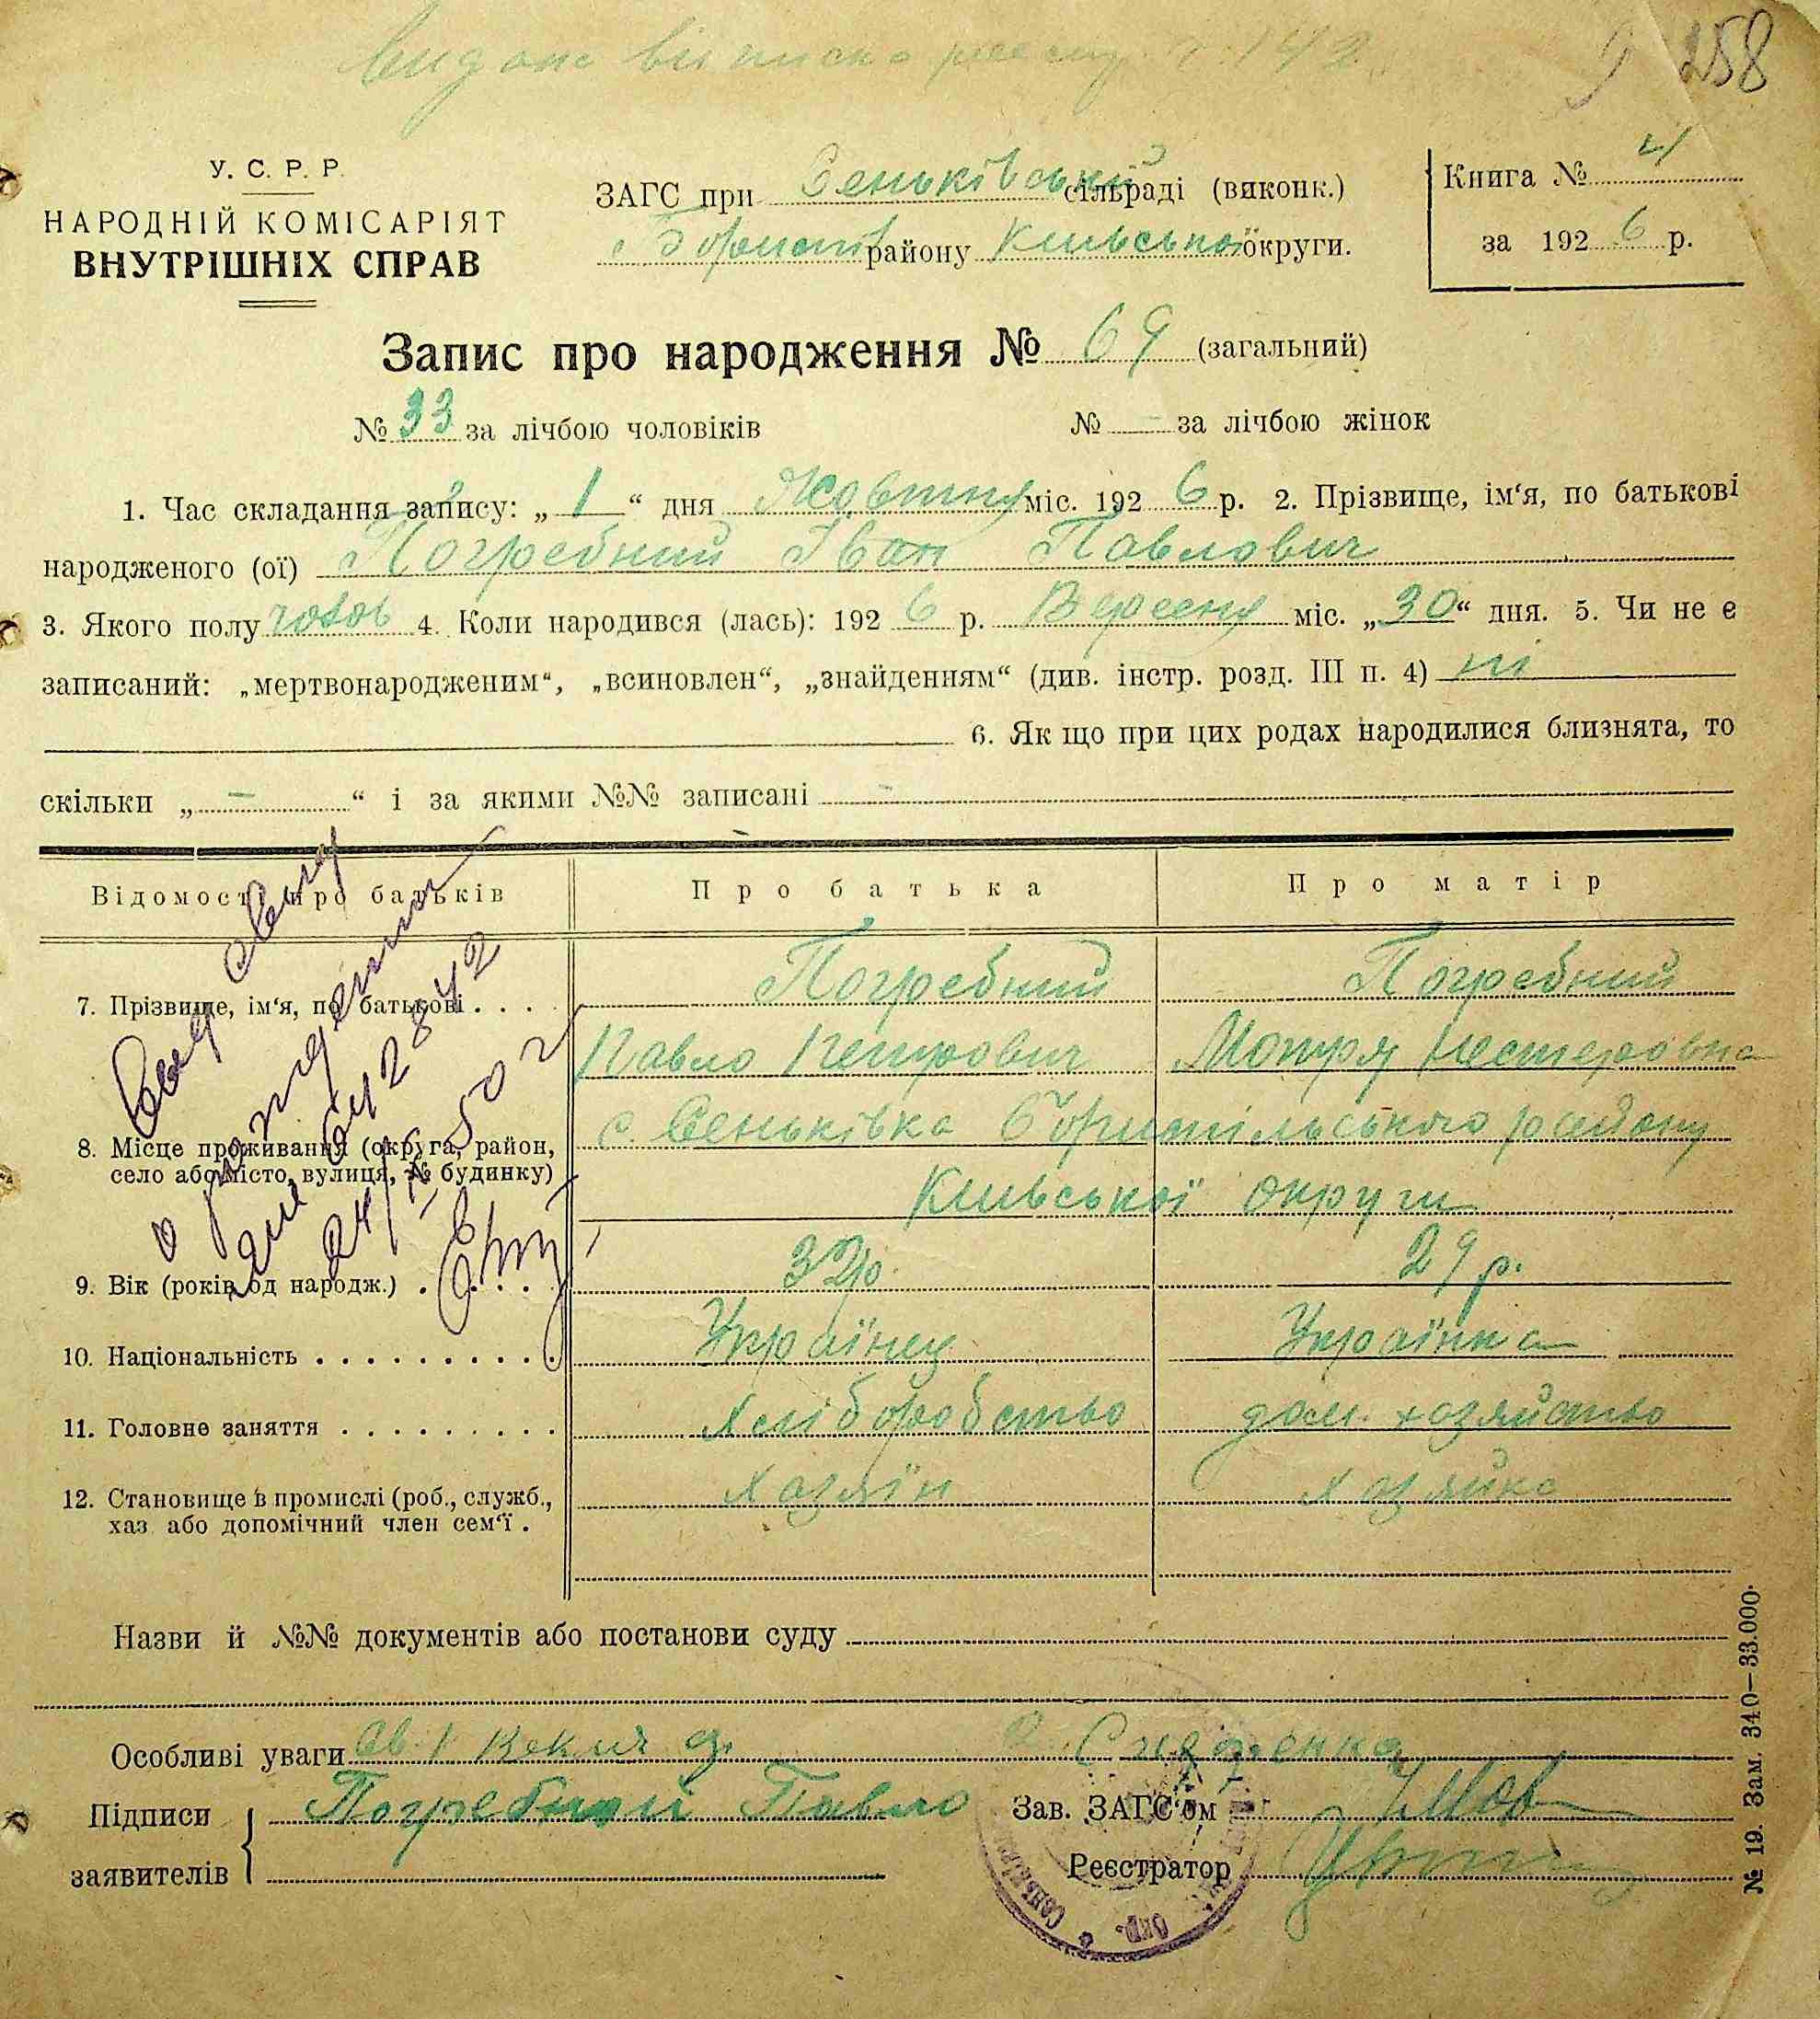 Видано виписка реестр. 142
258
У. С. Р. Р.
НАРОДНІЙ КОМІСАРІЯТ
ВНУТРІШНІХ СПРАВ
ЗАГС при Сеньківській сільраді (виконк.)
Борисп району Київської округи.
Книга № 4
за 1926 р.
Запис про народження № 69 (загальний)
№ 33 за лічбою чоловіків № — за лічбою жінок
1. Час складання запису: „ 1 “ дня Жовтня міс. 1926 р. 2. Прізвище, ім‘я, по батькові
народженого (ої) Погребний Іван Павлович
3. Якого полу чолов 4. Коли народився (лась): 1926 р. Вересня міс. „30“ дня. 5. Чи не є
записаний: „мертвонародженим“, „всиновлен“, „знайденням“ (див. інстр. розд. III п. 4) ні
6. Як що при цих родах народилися близнята, то
скільки „ — “ і за якими №№ записані —
Відомості про батьків Про батька Про матір
7. Прізвище, ім‘я, по батькові . . . . Погребний Погребний
Павло Петрович Мотря Нестеровна
8. Місце проживання (округа, район, с. Сеньківка Бориспільського району
село або місто, вулиця, № будинку) Київської округи
9. Вік (років од народж.) . . . . . 32р. 29 р.
10. Національність . . . . . . . . . . Українец Українка
11. Головне заняття . . . . . . . . . Хліборобство дом. хозяйство
12. Становище в промислі (роб., служб., хозяїн хозяйка
хаз. або допомічний член сем‘ї .
Назви й №№ документів або постанови суду
Особливі уваги
Підписи Погребний Павло Зав. ЗАГС‘ом
заявителів Реєстратор
№ 19. Зам. 340—33.000.